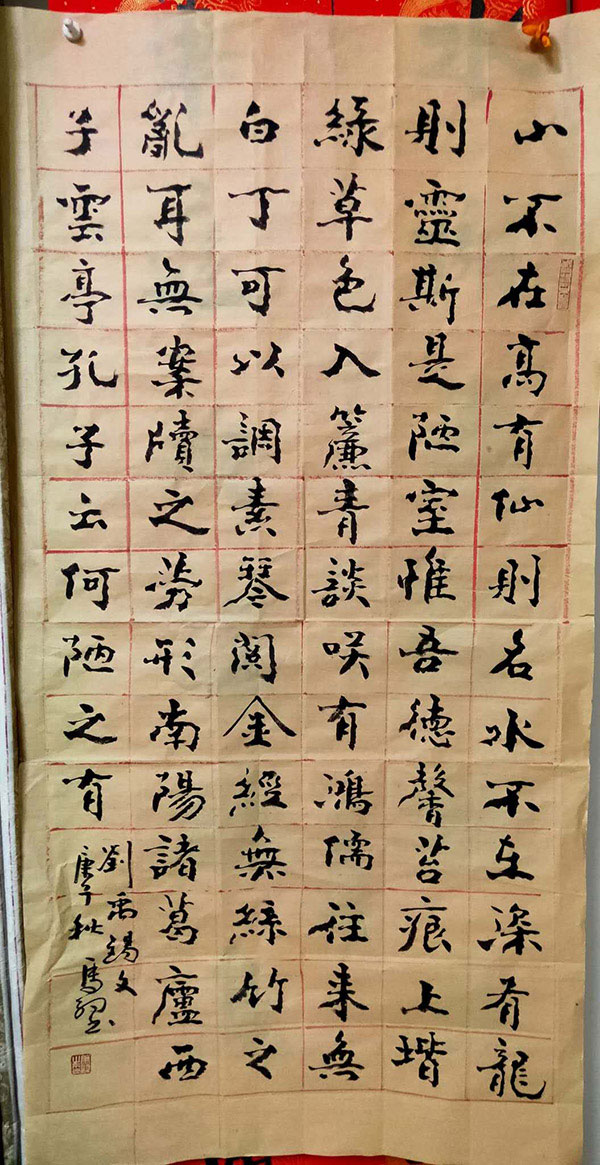 山不在高有仙則名水不在深有龍
則靈斯是陋室惟吾德馨苔痕上堦
綠草色入簾青談咲有鴻儒往来無
白丁可以調素琴閱金經無絲竹之
亂耳無案牘之勞形南陽諸葛廬西
子雲亭孔子云何陋之有
劉禹錫文
庚子秋馬